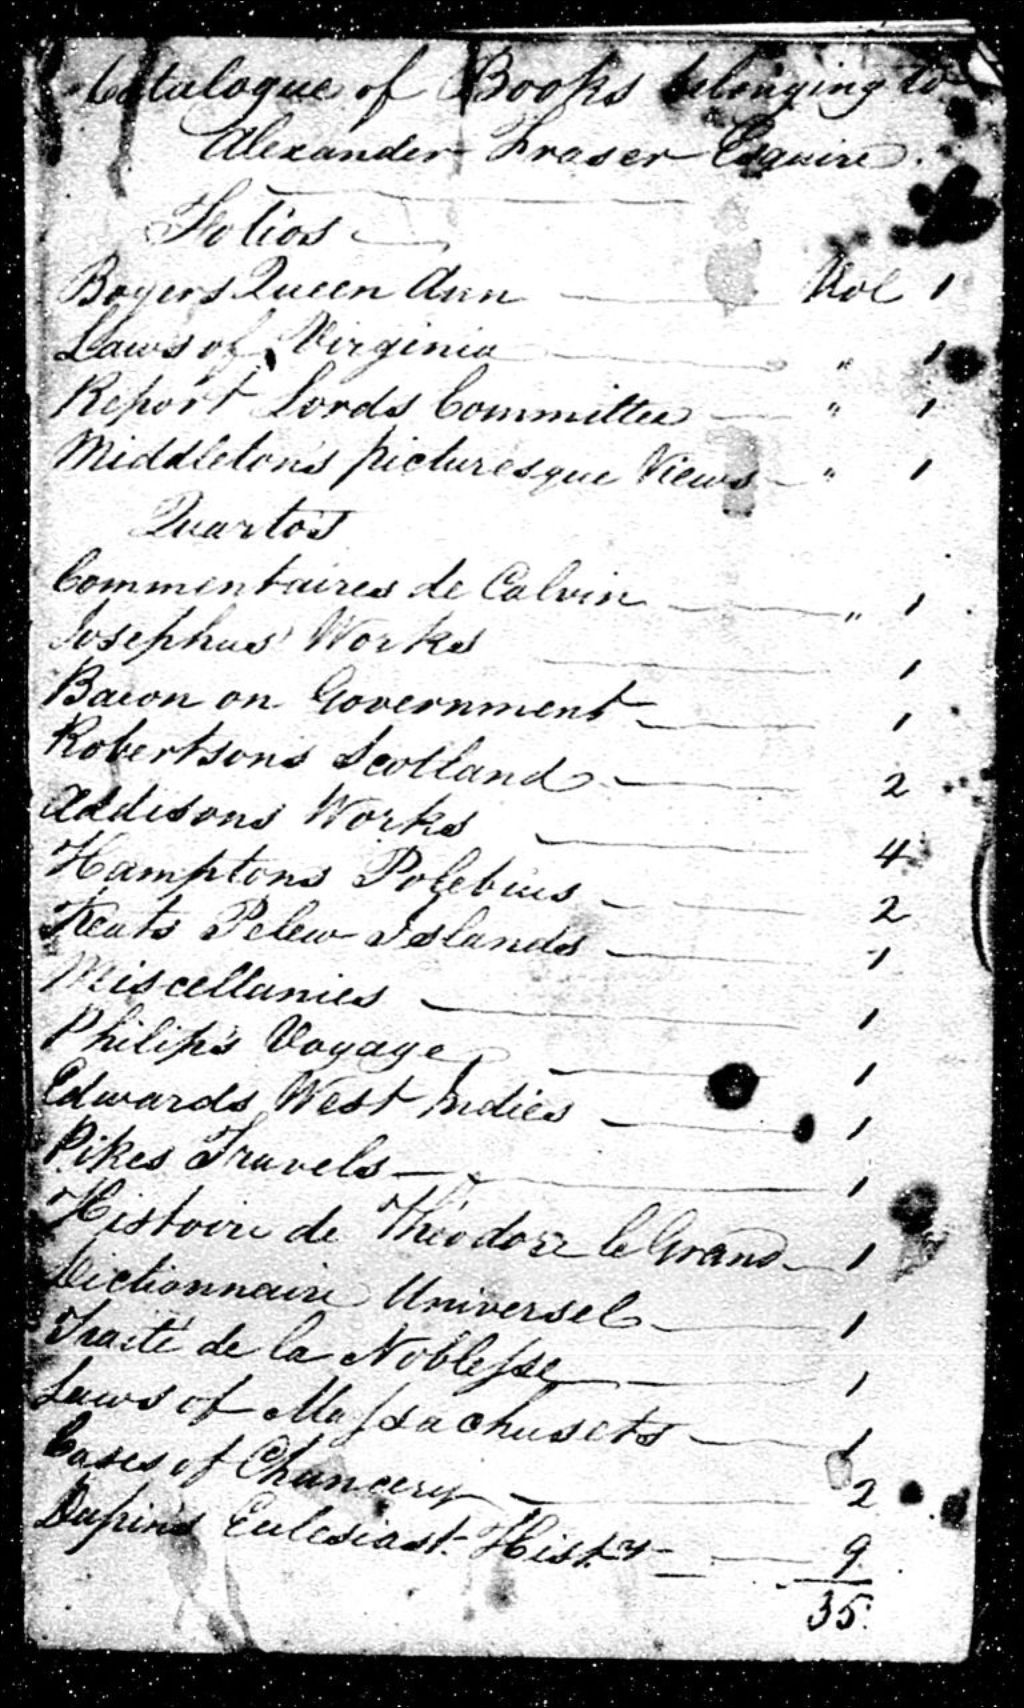 Catalogue of Books belonging to
Alexander Fraser Esquire.
Folios
Boyers Queen Ann Vol 1
Laws of Virginia " 1
Report Lords Committee " 1
Middleton's picturesque Views " 1
Quartos
Commentaires de Calvin " 1
Josephus' Works 1
Bacon on Government 1
Robertsons Scotland 2
Addisons Works 4
Hamptons Polebius 2
Keats Pelew Islands 1
Miscellanies 1
Philip's Voyage 1
Edwards West Indies 1
Pikes Travels 1
Histoire de Théodore le Grand 1
Dictionnaire Universel 1
Traité de la Noblesse 1
Laws of Massachusets 1
Cases of Chancery 2
Dupin's Eulesiast. Histy 9
35